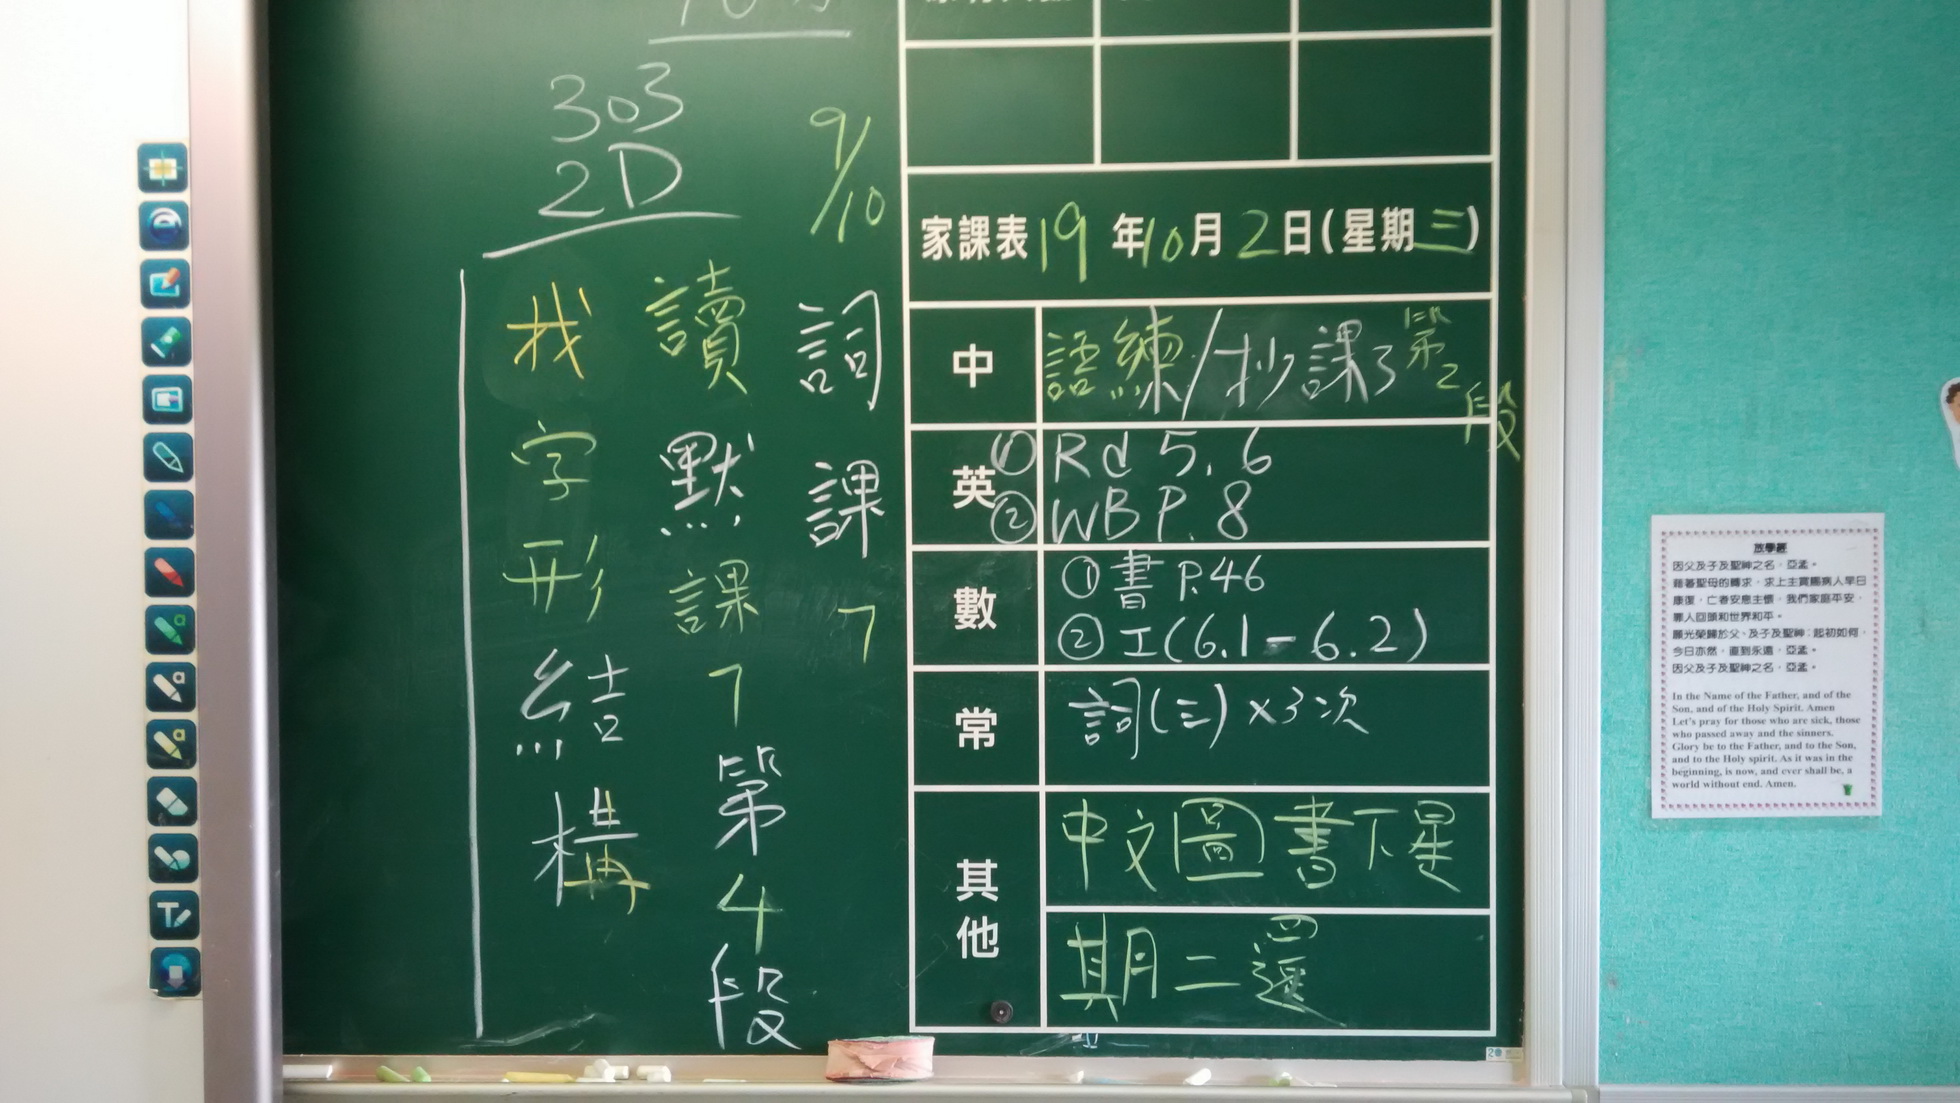 303
2D
9/10
詞課7
讀默課7第4段
找字形結構
家課表19年10月2日(星期三)
中
語練/抄課3第2段
英
① Rd 5. 6
② WB P. 8
數
① 書 P.46
② 工(6.1-6.2)
常
詞(三)x3次
其他
中文圖書下星
期二還
放學經
因父及子及聖神之名,亞孟。
藉著聖母的轉求,求上主賞賜病人早日
康復,亡者安息主懷,我們家庭平安,
罪人回頭和世界和平。
願光榮歸於父、及子及聖神:起初如何,
今日亦然,直到永遠,亞孟。
因父及子及聖神之名,亞孟。
In the Name of the Father, and of the
Son, and of the Holy Spirit. Amen
Let's pray for those who are sick, those
who passed away and the sinners.
Glory be to the Father, and to the Son,
and to the Holy spirit. As it was in the
beginning, is now, and ever shall be, a
world without end. Amen.